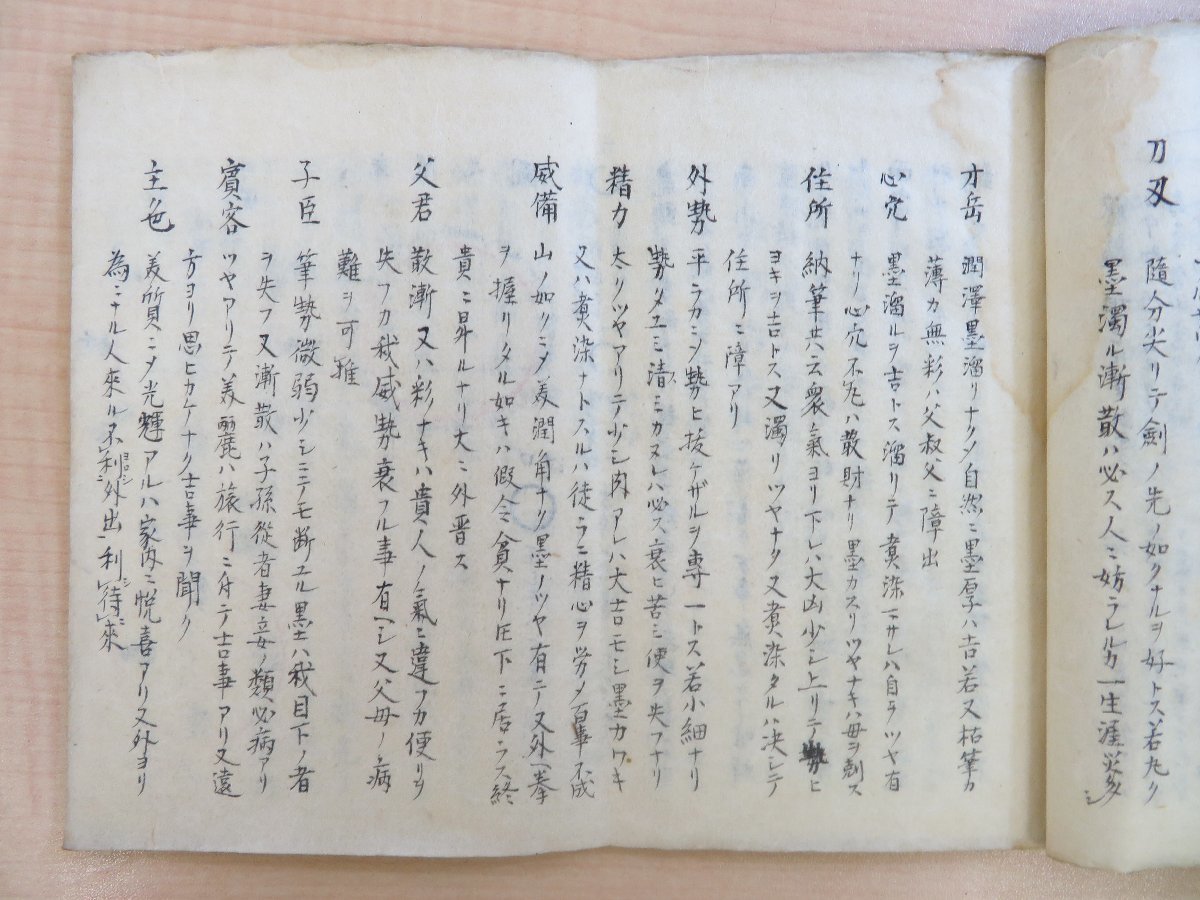 刀刄 隨分尖リテ劍ノ先ノ如クナルヲ好トス若丸ク
墨濁ル漸散ハ必ス人ニ妨ラレルカ一生涯災多シ
才岳 潤澤墨溜リナクメ自然ニ墨厚ハ吉若又枯筆カ
薄カ無彩ハ父叔父ニ障出
心穴 墨溜ルヲ吉トス溜リテ煮染マサレハ自テツヤ有
ナリ心穴不丸ハ散財ナリ墨カスリツヤナキハ母ヲ剋ス
住所 納筆共云衆氣ヨリ下レハ大凶少シ上リテ勢ヒ
ヨキヲ吉トス又濁リツヤナク又煮染タルハ決シテ
住所ニ障アリ
外勢 平ラカニメ勢ヒ抜ケザルヲ專一トス若小細ナリ
勢タユミ清ミカヌレハ必ス衰ヒ苦シミ便ヲ失フナリ
精力 太クツヤアリテ少シ肉アレハ大吉モシ墨カワキ
又ハ煮染ナトスルハ徒ラニ精心ヲ労メ百事不成
威備 山ノ如クニメ美潤角ナク墨ノツヤ有テ又外拳
ヲ握リタル如キハ假令貧ナリ圧下ニ居ラス終
貴ニ昇ルナリ大ニ外晋ス
父君 散漸又ハ彩ナキハ貴人ノ氣ニ違フカ便リヲ
失フカ我威勢衰フル事有ヘシ又父母ノ病
難ヲ可推
子臣 筆勢微弱少シニテモ断ユル墨ハ我目下ノ者
ヲ失フ又漸散ハ子孫從者妻妾ノ類必病アリ
賓客 ツヤアリテ美麗ハ旅行ニ舟テ吉事アリ又遠
方ヨリ思ヒカケナク吉事ヲ聞ク
主色 美所質ニメ光輝アルハ家内ニ悦喜アリ又外ヨリ
為ニナル人來ル不利外出利待來